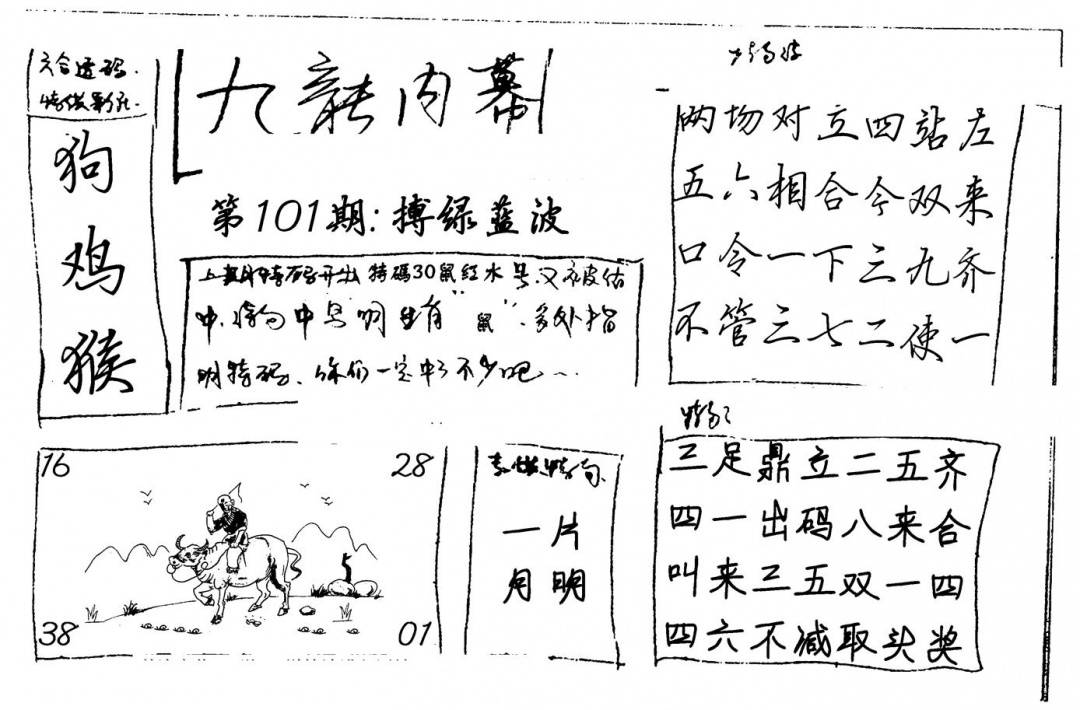 六合透码
狗
鸡
猴
九龍内幕
第101期:搏绿蓝波
上期特码开出特碼30鼠红水号又被估
中,特句中早明生肖“鼠”,多处指
明特码、你们一定中了不少吧
两场对立四站左
五六相合今双来
口令一下三九齐
不管三七二使一
16
28
38
01
一片
月明
三足鼎立二五齐
四一出码八来合
叫来三五双一四
四六不减取头奖